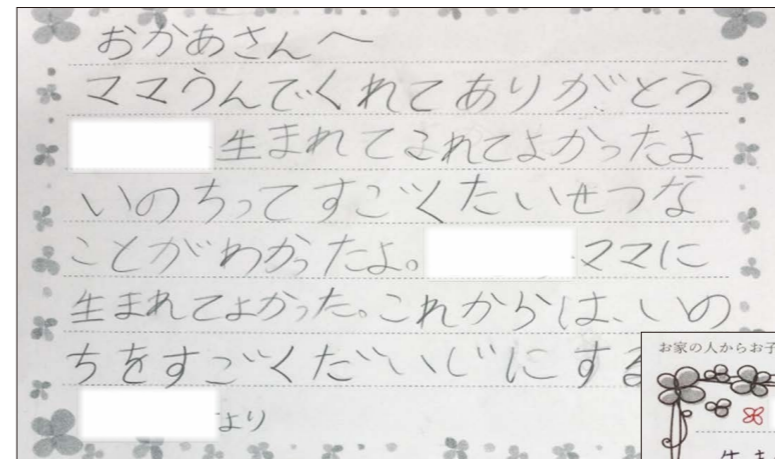 おかあさんへ
ママうんでくれてありがとう
生まれてこれてよかったよ
いのちってすごくたいせつな
ことがわかったよ。ママに
生まれてよかった。これからは、いの
ちをすごくだいじにする
より
お家の人からお子